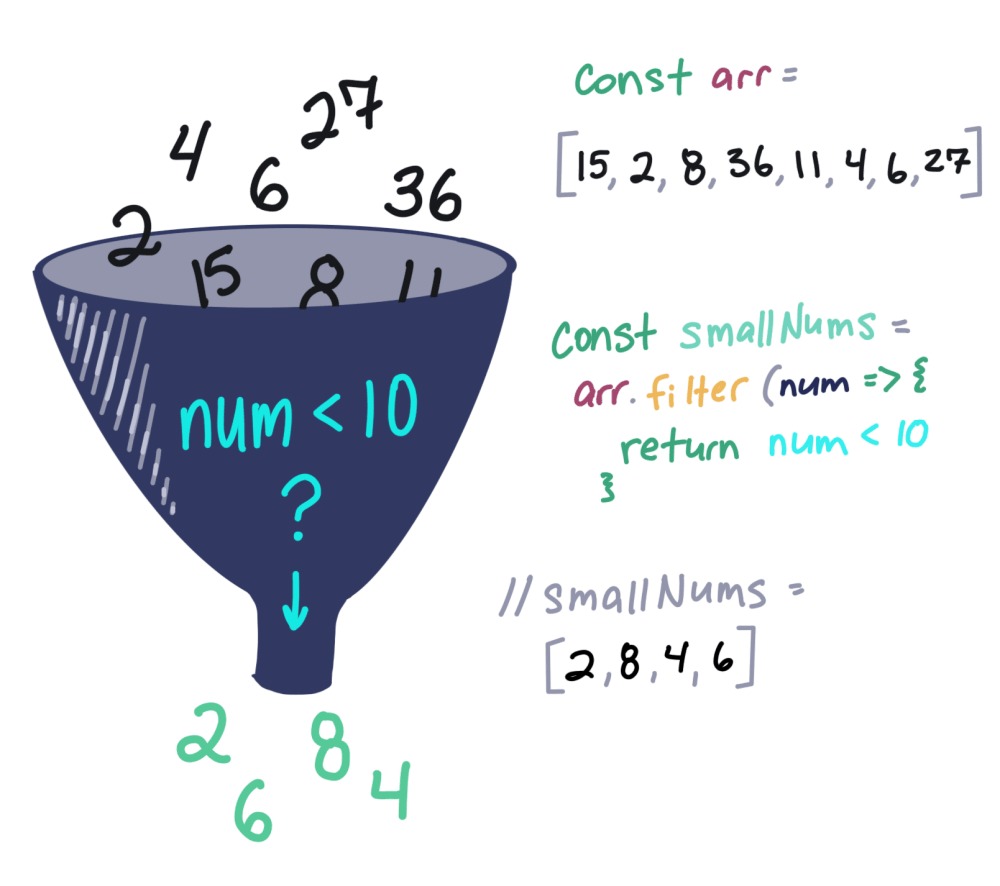 27
4
6
36
2
15
8
11
num < 10
?
2
8
6
4
const arr =
[15, 2, 8, 36, 11, 4, 6, 27]
const smallNums =
arr.filter (num => {
return num < 10
}
// smallNums =
[2, 8, 4, 6]